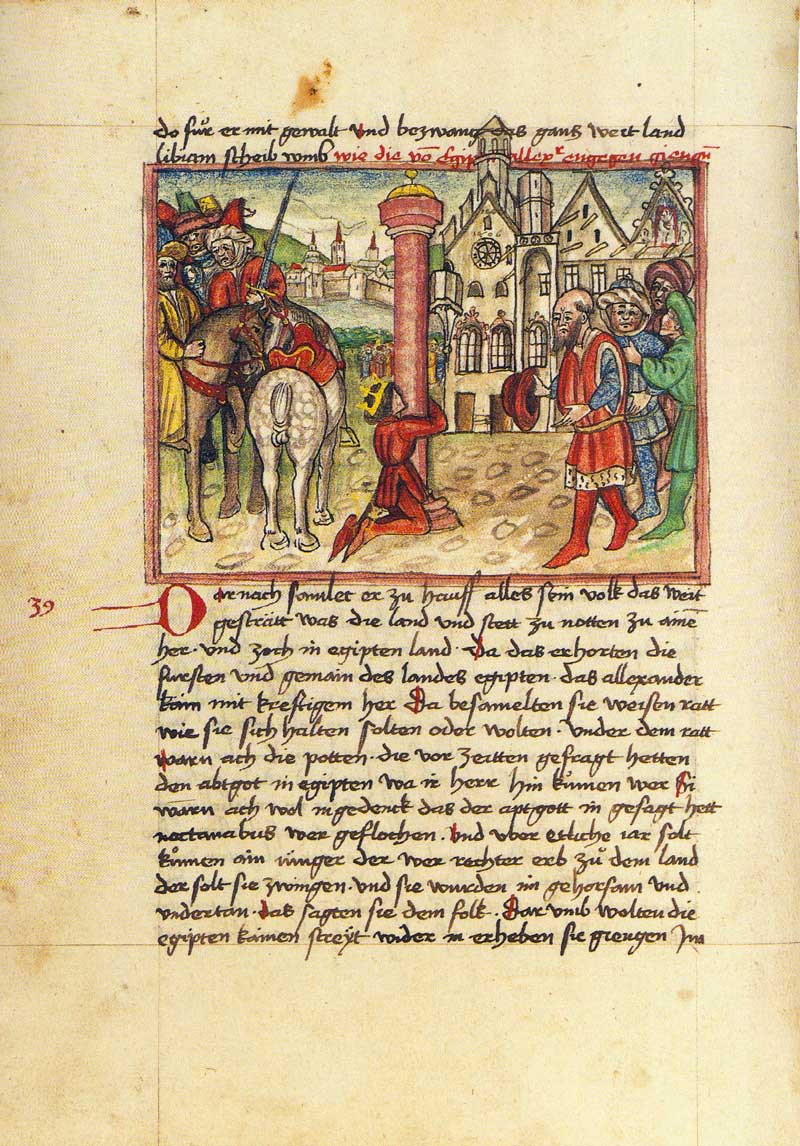 do fuͤr er mit gewalt Vnd bezwang das gantz weit land
libiam scheib vmb wie die võ Egip allexr engegen giengñ
39
Dar nach samlet er zu hauff alles sein volk das weit
gestratt was die land vnd stett zu notten zu aine
her · vnd zoch in egipten land · Da das erhorten die
fursten vnd gemain des landes egipten · das allexander
kam mit kreftigem her Da besamelten sie weisen ratt
wie sie sich halten solten oder wolten · vnder dem ratt
warn ach die potten · die vor zeitten gefragt hetten
den abtgot in egipten wa ir herr hin kumen wer Si
warn ach wol ingedenck das der aptgott in gesagt hett
nectanabus wer geflochen · Vnd vber etliche iar solt
kumen ain iunger der wer rechter erb zuͦ dem land
der solt sie zwingen · vnd sie wurden im gehorsam vnd
vndertan · das sagten sie dem folk · Dar vmb wolten die
egipten kainen streyt wider in erheben sie giengen Im